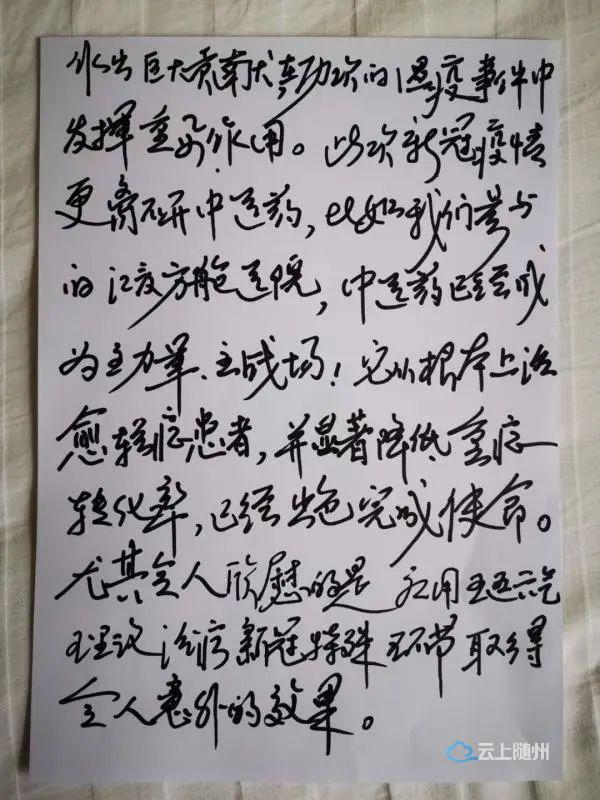 作出巨大贡献,在历次的温疫事件中
发挥重要作用。此次新冠疫情
更离不开中医药,比如我们参与
的江夏方舱医院,中医药已经成
为主力军、主战场!它从根本上治
愈轻症患者,并显著降低重症
转化率,已经出色完成使命。
尤其令人欣慰的是 应用五运六气
理论治疗新冠特殊环节取得
令人意外的效果。
云上随州